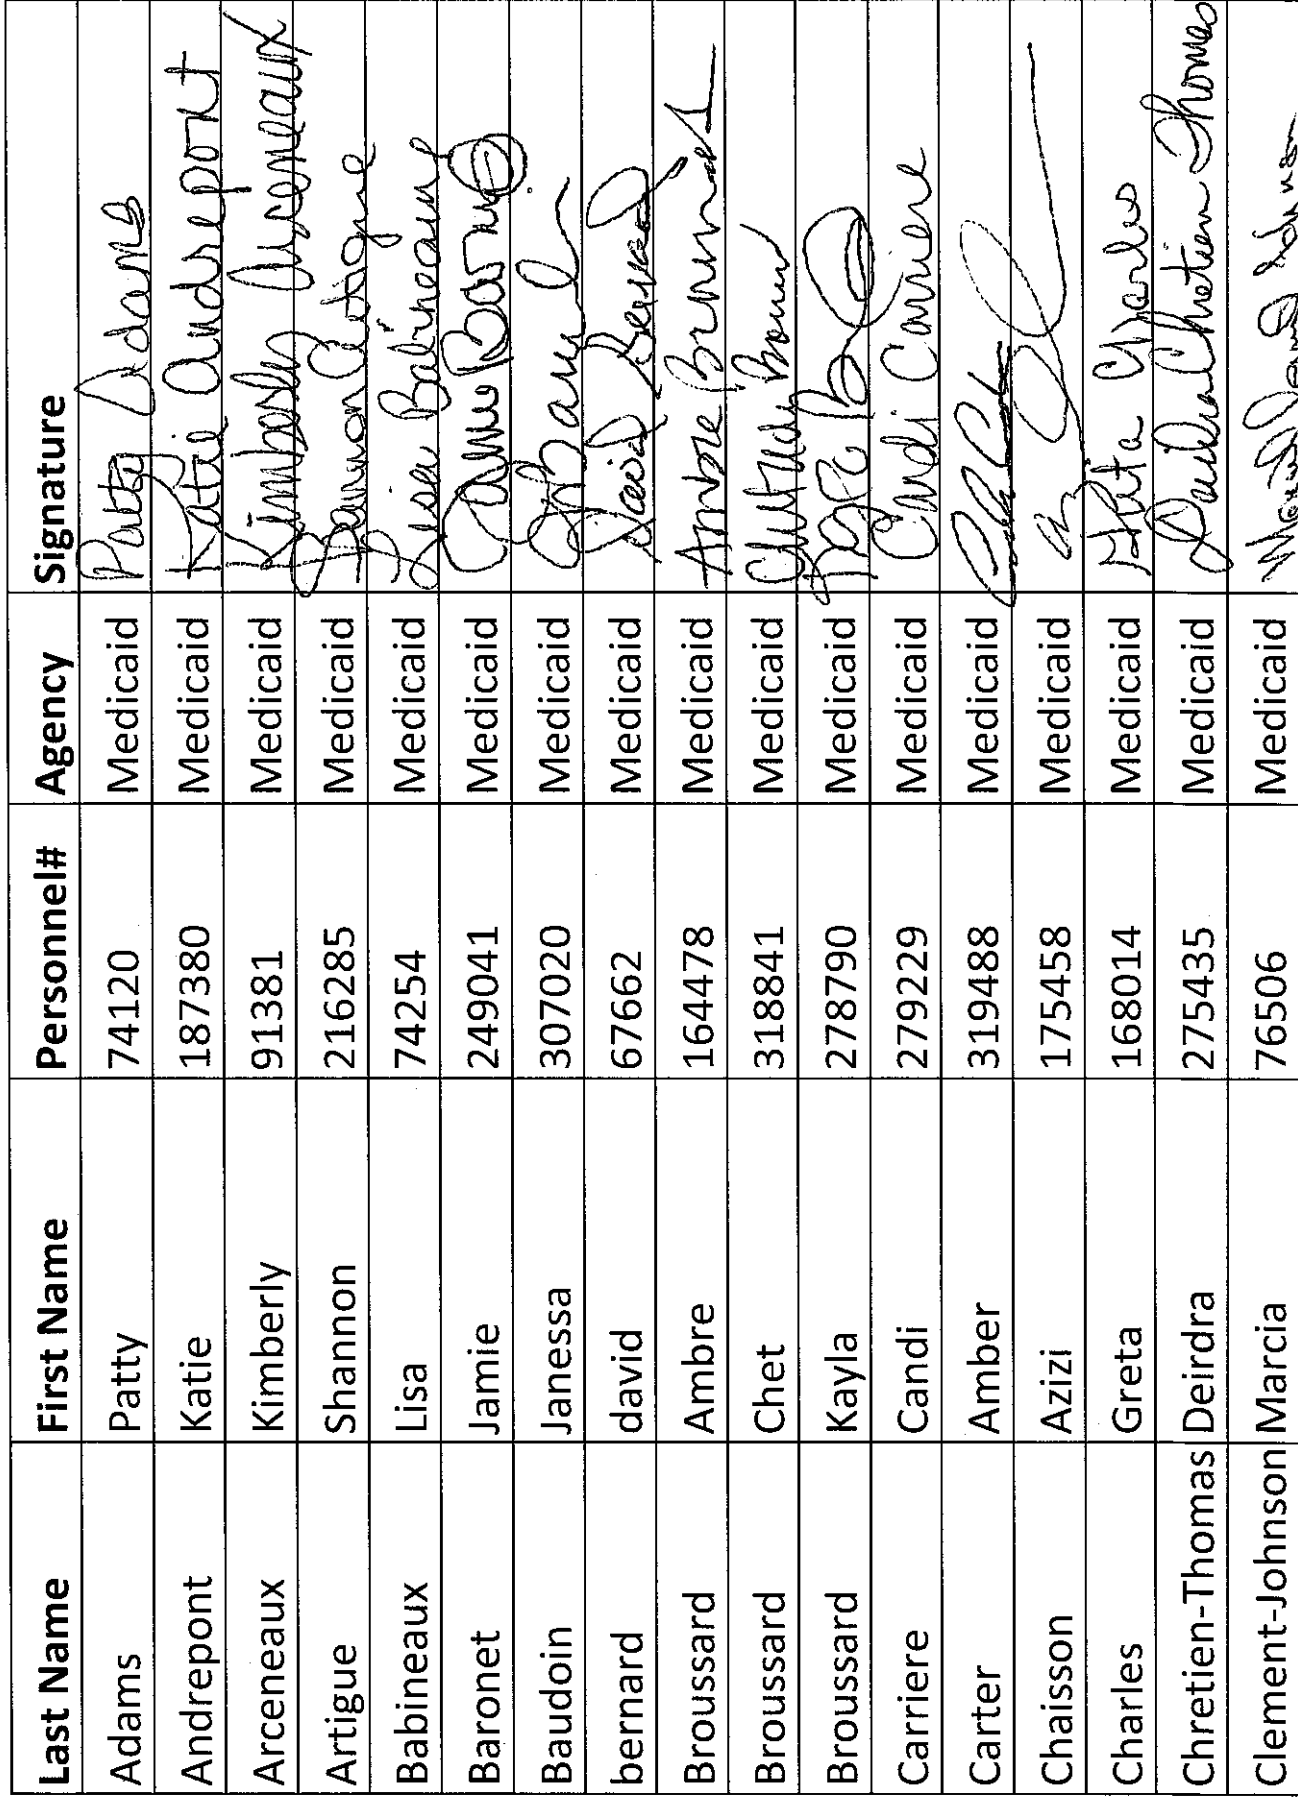 Last Name First Name Personnel# Agency Signature
Adams Patty 74120 Medicaid Patty Adams
Andrepont Katie 187380 Medicaid Katie Andrepont
Arceneaux Kimberly 91381 Medicaid Kimberly Arceneaux
Artigue Shannon 216285 Medicaid Shannon Artigue
Babineaux Lisa 74254 Medicaid Lisa Babineaux
Baronet Jamie 249041 Medicaid
Baudoin Janessa 307020 Medicaid
bernard david 67662 Medicaid David
Broussard Ambre 164478 Medicaid Ambre
Broussard Chet 318841 Medicaid
Broussard Kayla 278790 Medicaid
Carriere Candi 279229 Medicaid Candi Carriere
Carter Amber 319488 Medicaid
Chaisson Azizi 175458 Medicaid
Charles Greta 168014 Medicaid Greta Charles
Chretien-Thomas Deirdra 275435 Medicaid Deirdra Chretien Thomas
Clement-Johnson Marcia 76506 Medicaid